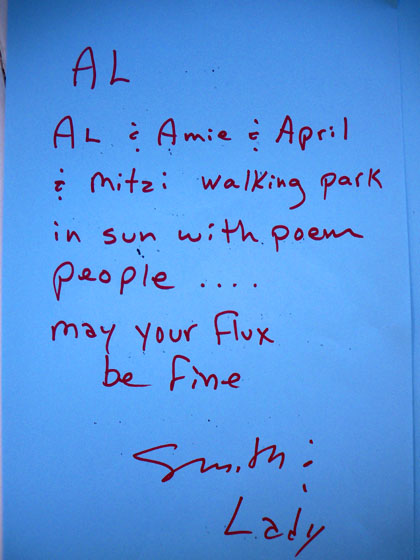 AL
AL & Amie & April
& Mitzi walking park
in sun with poem
people ....
may your flux
be fine
Smith &
Lady